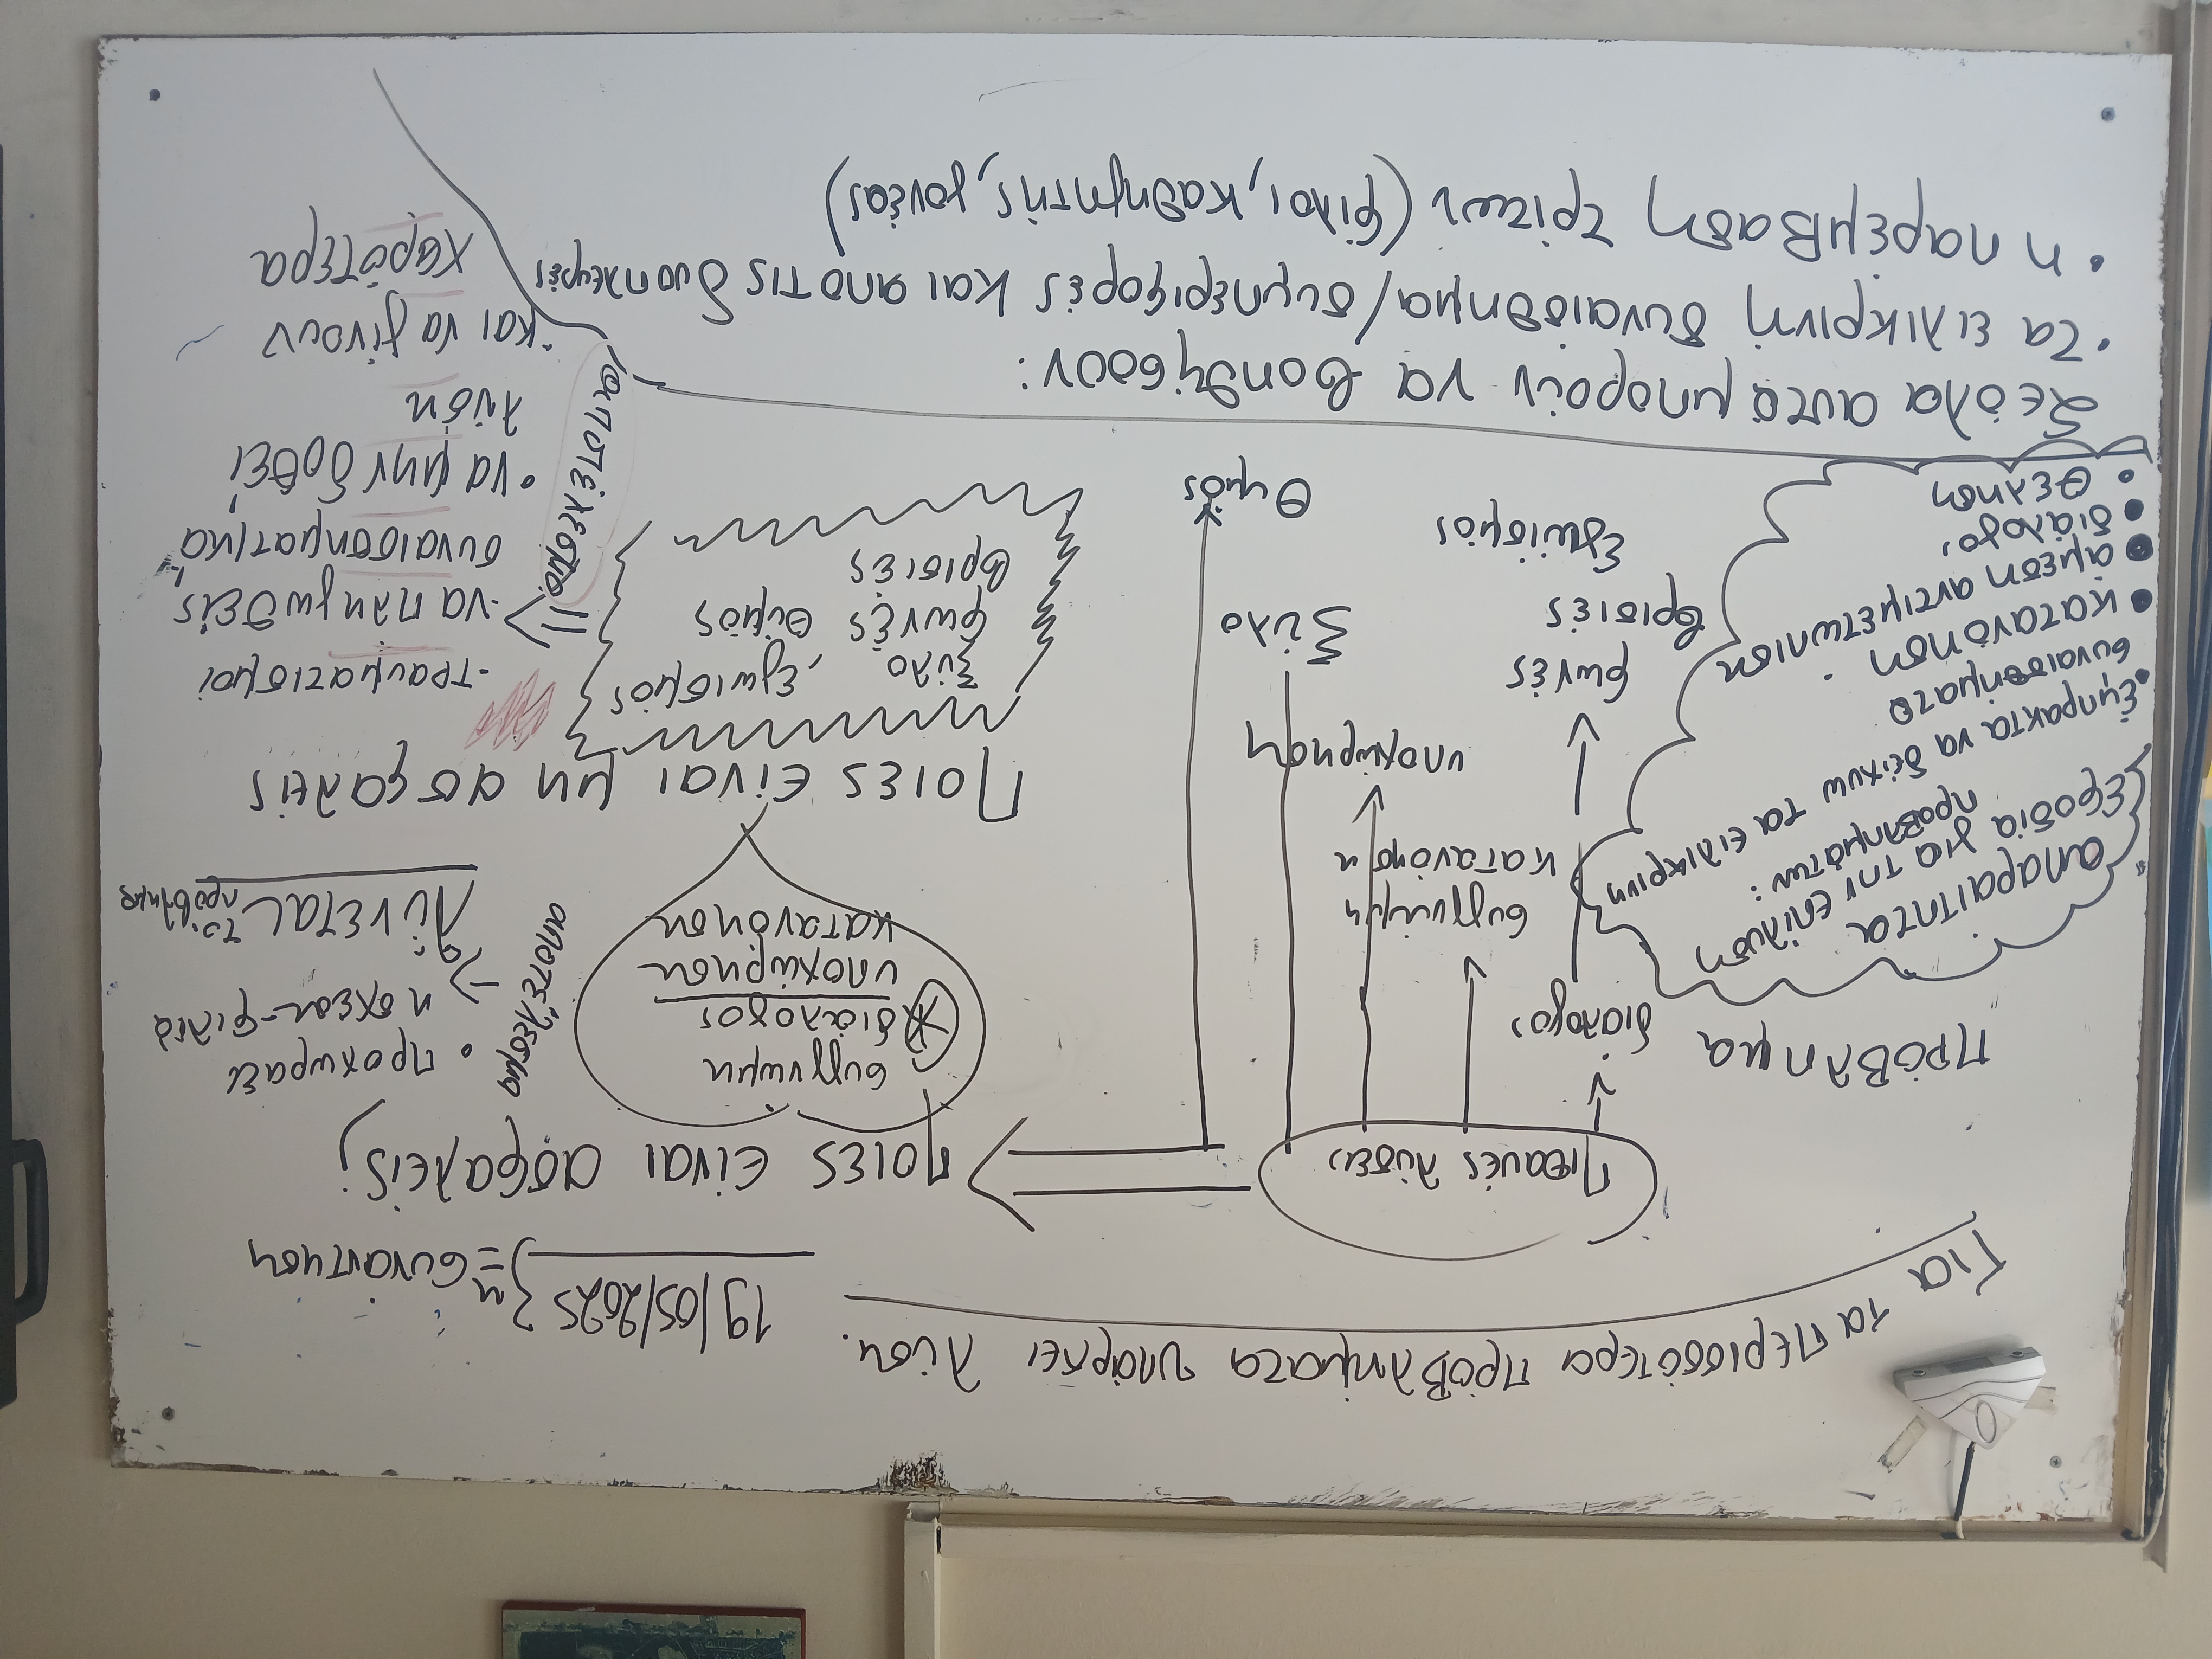 Για τα περισσότερα προβλήματα υπάρχει λύση.
19/05/2025 3η = συνάντηση
Πιθανές λύσεις
Πρόβλημα
διάλογος
συγγνώμη
κατανόηση
υποχώρηση
φωνές
βρισιές
Εγωισμός
Ξύλο
Θυμός
απαραίτητα
εφόδια για την επίλυση
προβλημάτων:
• έμπρακτα να δείχνω τα ειλικρινή
συναισθήματα
• κατανόηση
• άμεση αντιμετώπιση
• διάλογος
• θέληση
Ποιες είναι ασφαλείς;
συγγνώμη
διάλογος
υποχώρηση
κατανόηση
αποτέλεσμα
• προχωράει
η σχέση - φιλία
Λύνεται το πρόβλημα
Ποιες είναι μη ασφαλείς
Ξύλο - Εγωισμός
φωνές θυμός
βρισιές
αποτέλεσμα
- τραυματισμοί
- να πληγωθείς
συναισθηματικά
• να μην δοθεί
λύση
• και να γίνουν
χειρότερα
Σε όλα αυτά μπορούν να βοηθήσουν:
• τα ειλικρινή συναισθήμα/συμπεριφορές και από τις δυο πλευρές
• η παρέμβαση τρίτων (φίλοι, καθηγητής, γονέας)